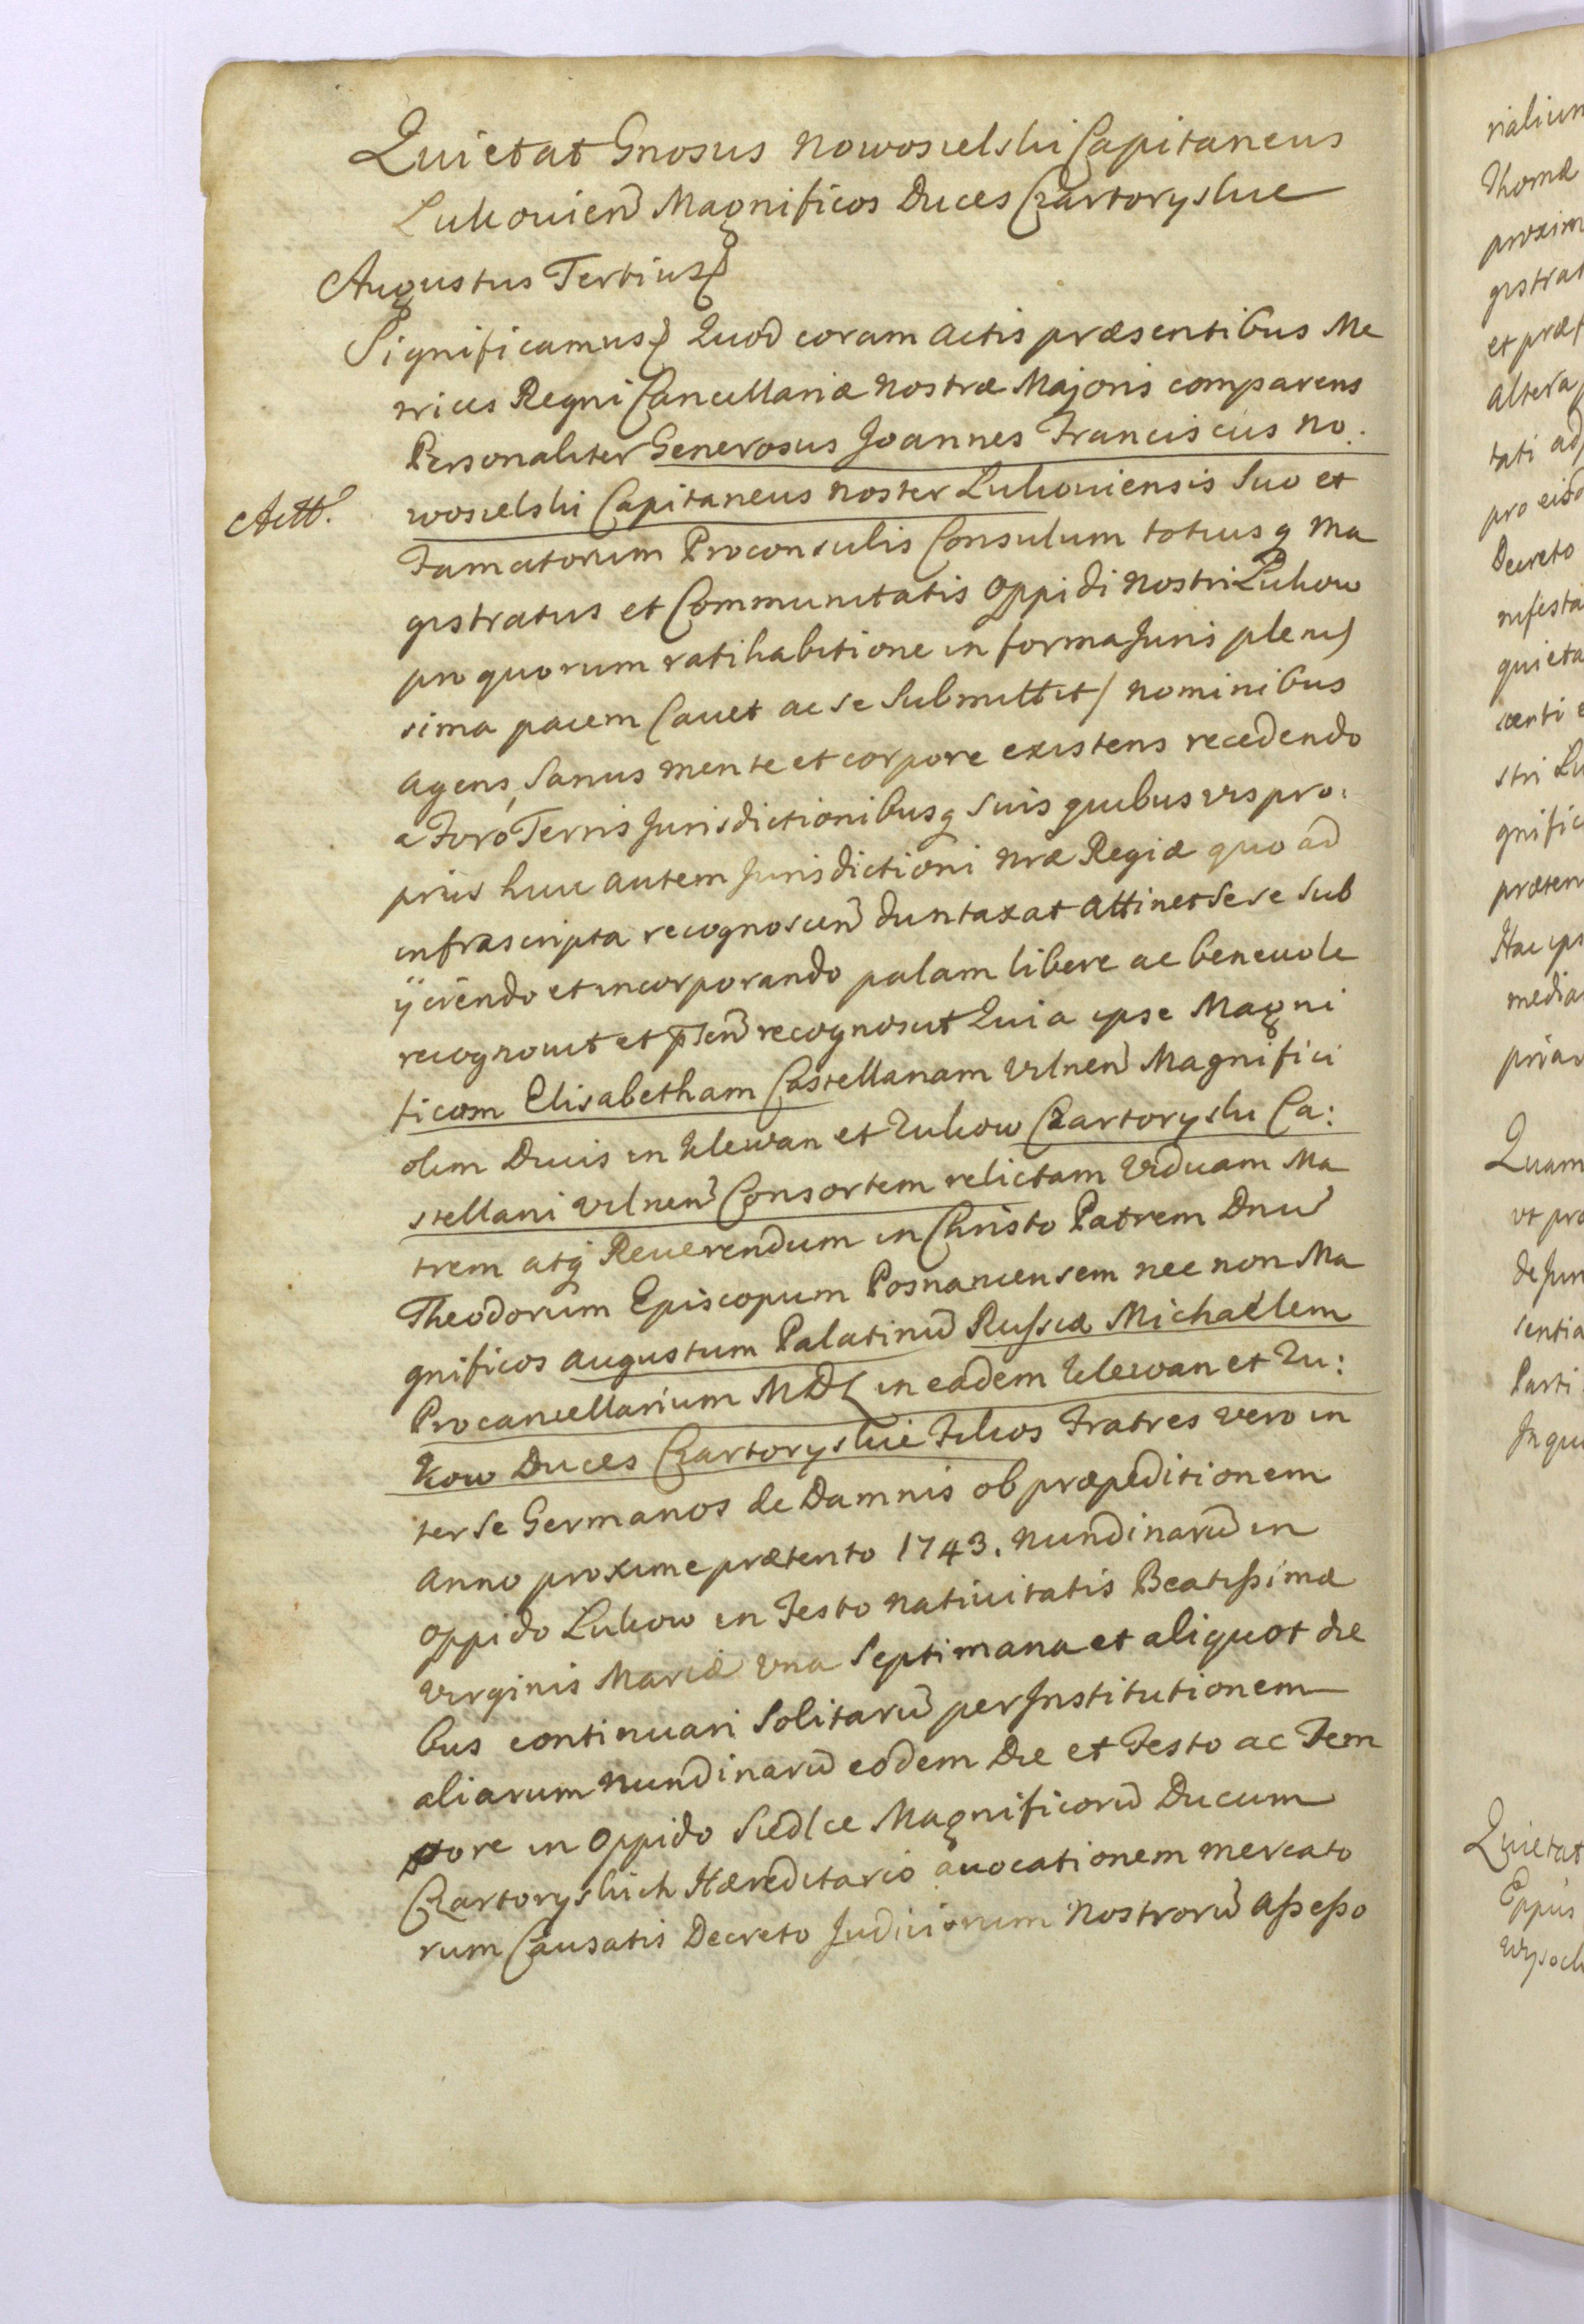 Quietat Gnosus Nowosielski Capitaneus
Lukovien̄ Magnificos Duces Czartoryskie
Augustus Tertius
Significamus Quod coram Actis præsentibus Me
trices Regni Cancellariæ Nostræ Majoris comparens
Personaliter Generosus Joannes Franciscus No:
wosielski Capitaneus Noster Lukoviensis Suo et
Actt.
Famatorum Proconsulis Consulum totiusq Ma
gistratus et Communitatis Oppidi Nostri Lukow
pro quorum ratihabitione in forma Juris plenis
sima pacem Cavet ac se Submittit/ Nominibus
Agens, Sanus mente et corpore existens recedendo
a Foro Terris Jurisdictionibusq Suis quibusvis pro:
priis huic autem Jurisdictioni Nræ Regiæ quo ad
infrascripta recognoscen̄ duntaxat attinet Sese Sub
ÿciendo et incorporando palam libere ac benevole
recognovit et p̄sen̄ recognoscit Quia ipse Magni
ficam Elisabetham Castellanam Vilnen̄ Magnifici
olim Ducis in Klewan et Zukow Czartoryski Ca:
stellani Vilnen̄ Consortem relictam Viduam Ma
trem atq Reverendum in Christo Patrem Dnū
Theodorum Episcopum Posnaniensem nec non Ma
gnificos Augustum Palatinū Russiæ Michaëlem
Procancellarium MDL in eadem Klewan et Zu:
kow Duces Czartoryskie Filios Fratres vero in
ter Se Germanos de Damnis ob præpeditionem
Anno proxime prætento 1743. Nundinarū in
Oppido Lukow in Festo Nativitatis Beatissimæ
Virginis Mariæ Una Septimana et aliquot die
bus continuari Solitarū per Institutionem
aliarum Nundinarū eodem Die et Festo ac Tem
pore in Oppido Siedlce Magnificorū Ducum
Czartoryskich Hæreditario avocationem mercato
rum Causatis Decreto Judiciorum Nostrorū Assesso
rialium
Thomæ
proxim
gistrat
et præf
altera
tati ad
pro eisd
Decreto
nifesta
quieta
centi e
stri Lu
gnific
præten
Hac ips
media
priar
Quam
ut pro
de Jur
sentia
Parti
In qu
Quietat
Eppus
Wysock